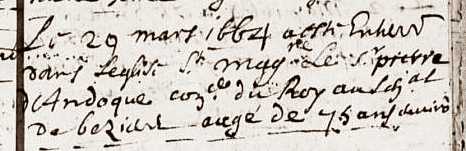 Le 29 mars 1664 a esté Enterré
dans Leglise Ste Magne Le Sr pierre
D'Andoque coner du Roy au Seneschal
De beziers aagé de 75 ans environ